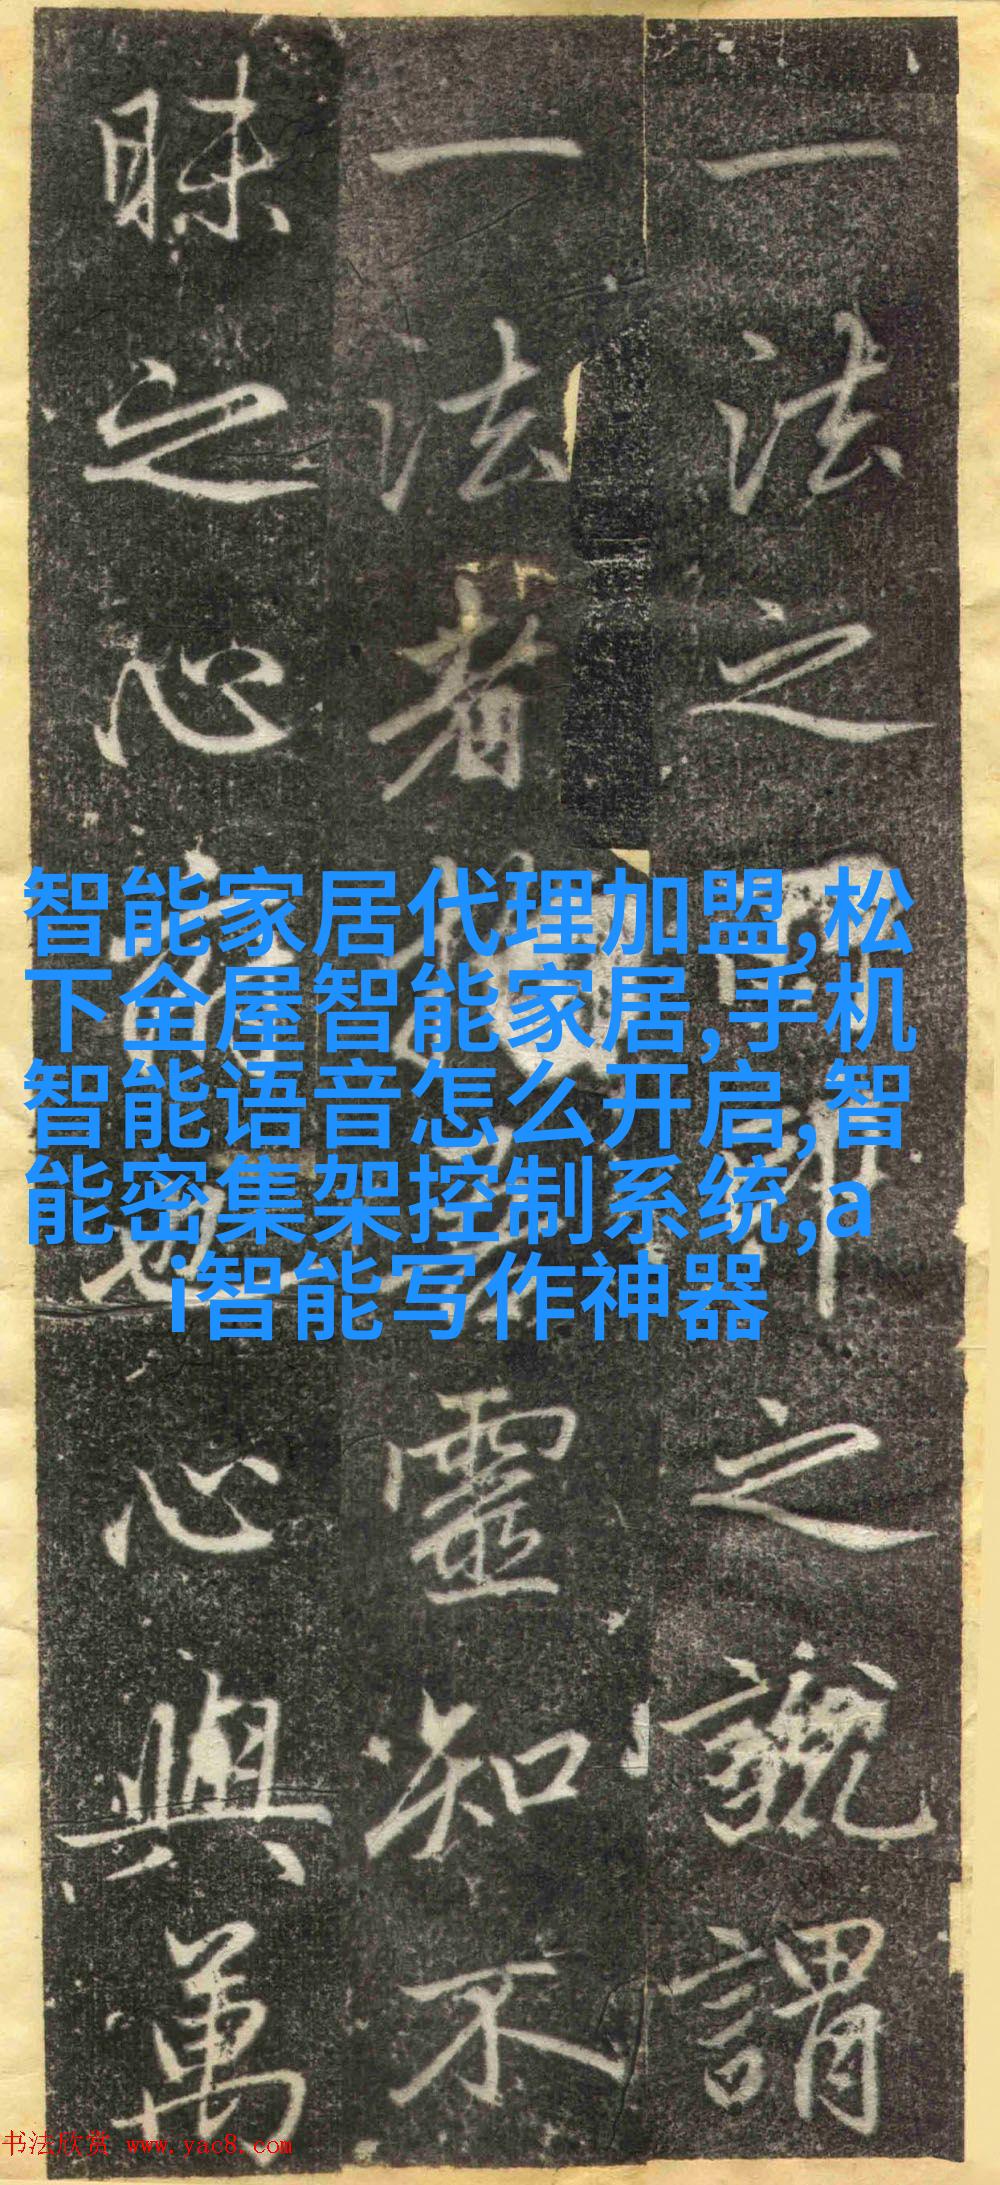 一法之之謂
一法者靈知不
昧之心也心與萬
智能家居代理加盟,松
下全屋智能家居,手机
智能语音怎么开启,智
能密集架控制系统,a
i智能写作神器
书法欣赏 www.yac8.com